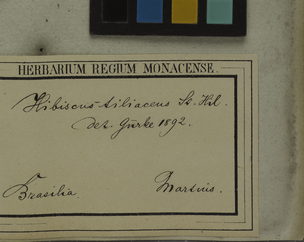 HERBARIUM REGIUM MONACENSE.
Hibiscus tiliaceus St. Hil.
det. Gürke 1892.
Brasilia. Martius.